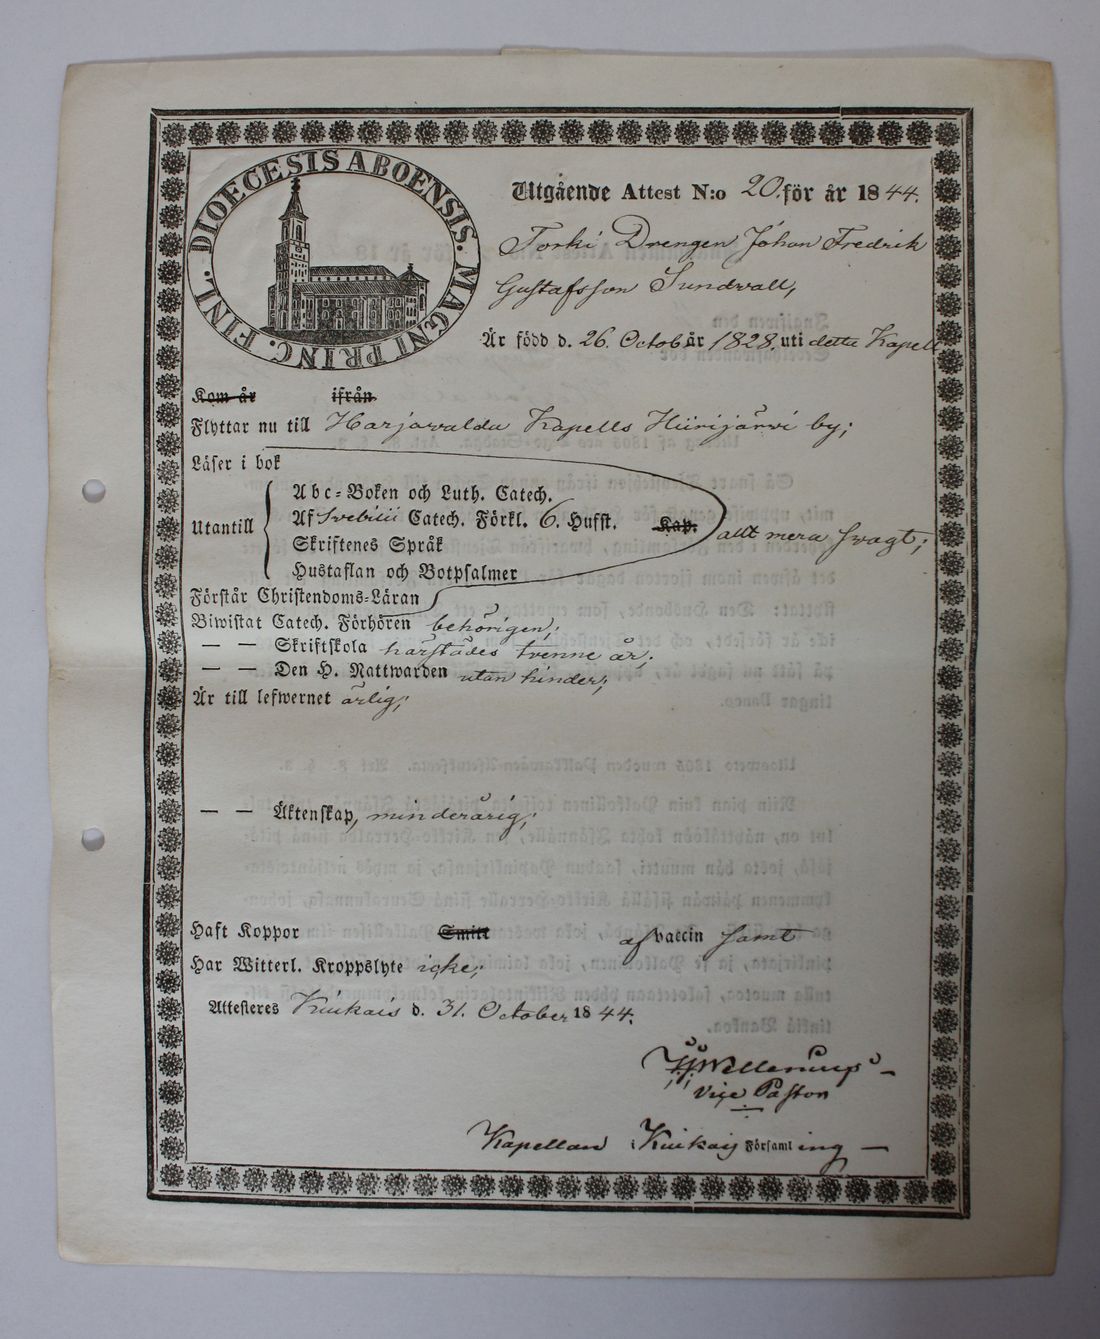 DIOECESIS ABOENSIS. MAGNI PRINC. FINL.
Utgående Attest N:o 20. för år 1844.
Torki Drengen Johan Fredrik
Gustafsson Sundvall,
Är född d. 26. Octob år 1828. uti detta Kapell
Kom år ifrån
Flyttar nu till Harjavalda Kapells Hiirijärvi by;
Läser i bok
Abc-Boken och Luth. Catech.
Utantill Af Svebilii Catech. Förkl. 6. Hufst. Kap. allt mera swagt;
Skriftenes Språk
Hustaflan och Botpsalmer
Förstår Christendoms-Läran
Biwistat Catech. Förhören behörigen;
— — Skriftskola härstädes trenne år;
— — Den H. Nattwarden utan hinder;
Är till lefwernet ärlig;
— — Äktenskap, minderårig;
Haft Koppor Smitt af vaccin samt
Har Witterl. Kroppslyte icke;
Attesteres Kiukais d. 31. October 1844.
Vice Pastor
Kapellan i Kiukais Församling —